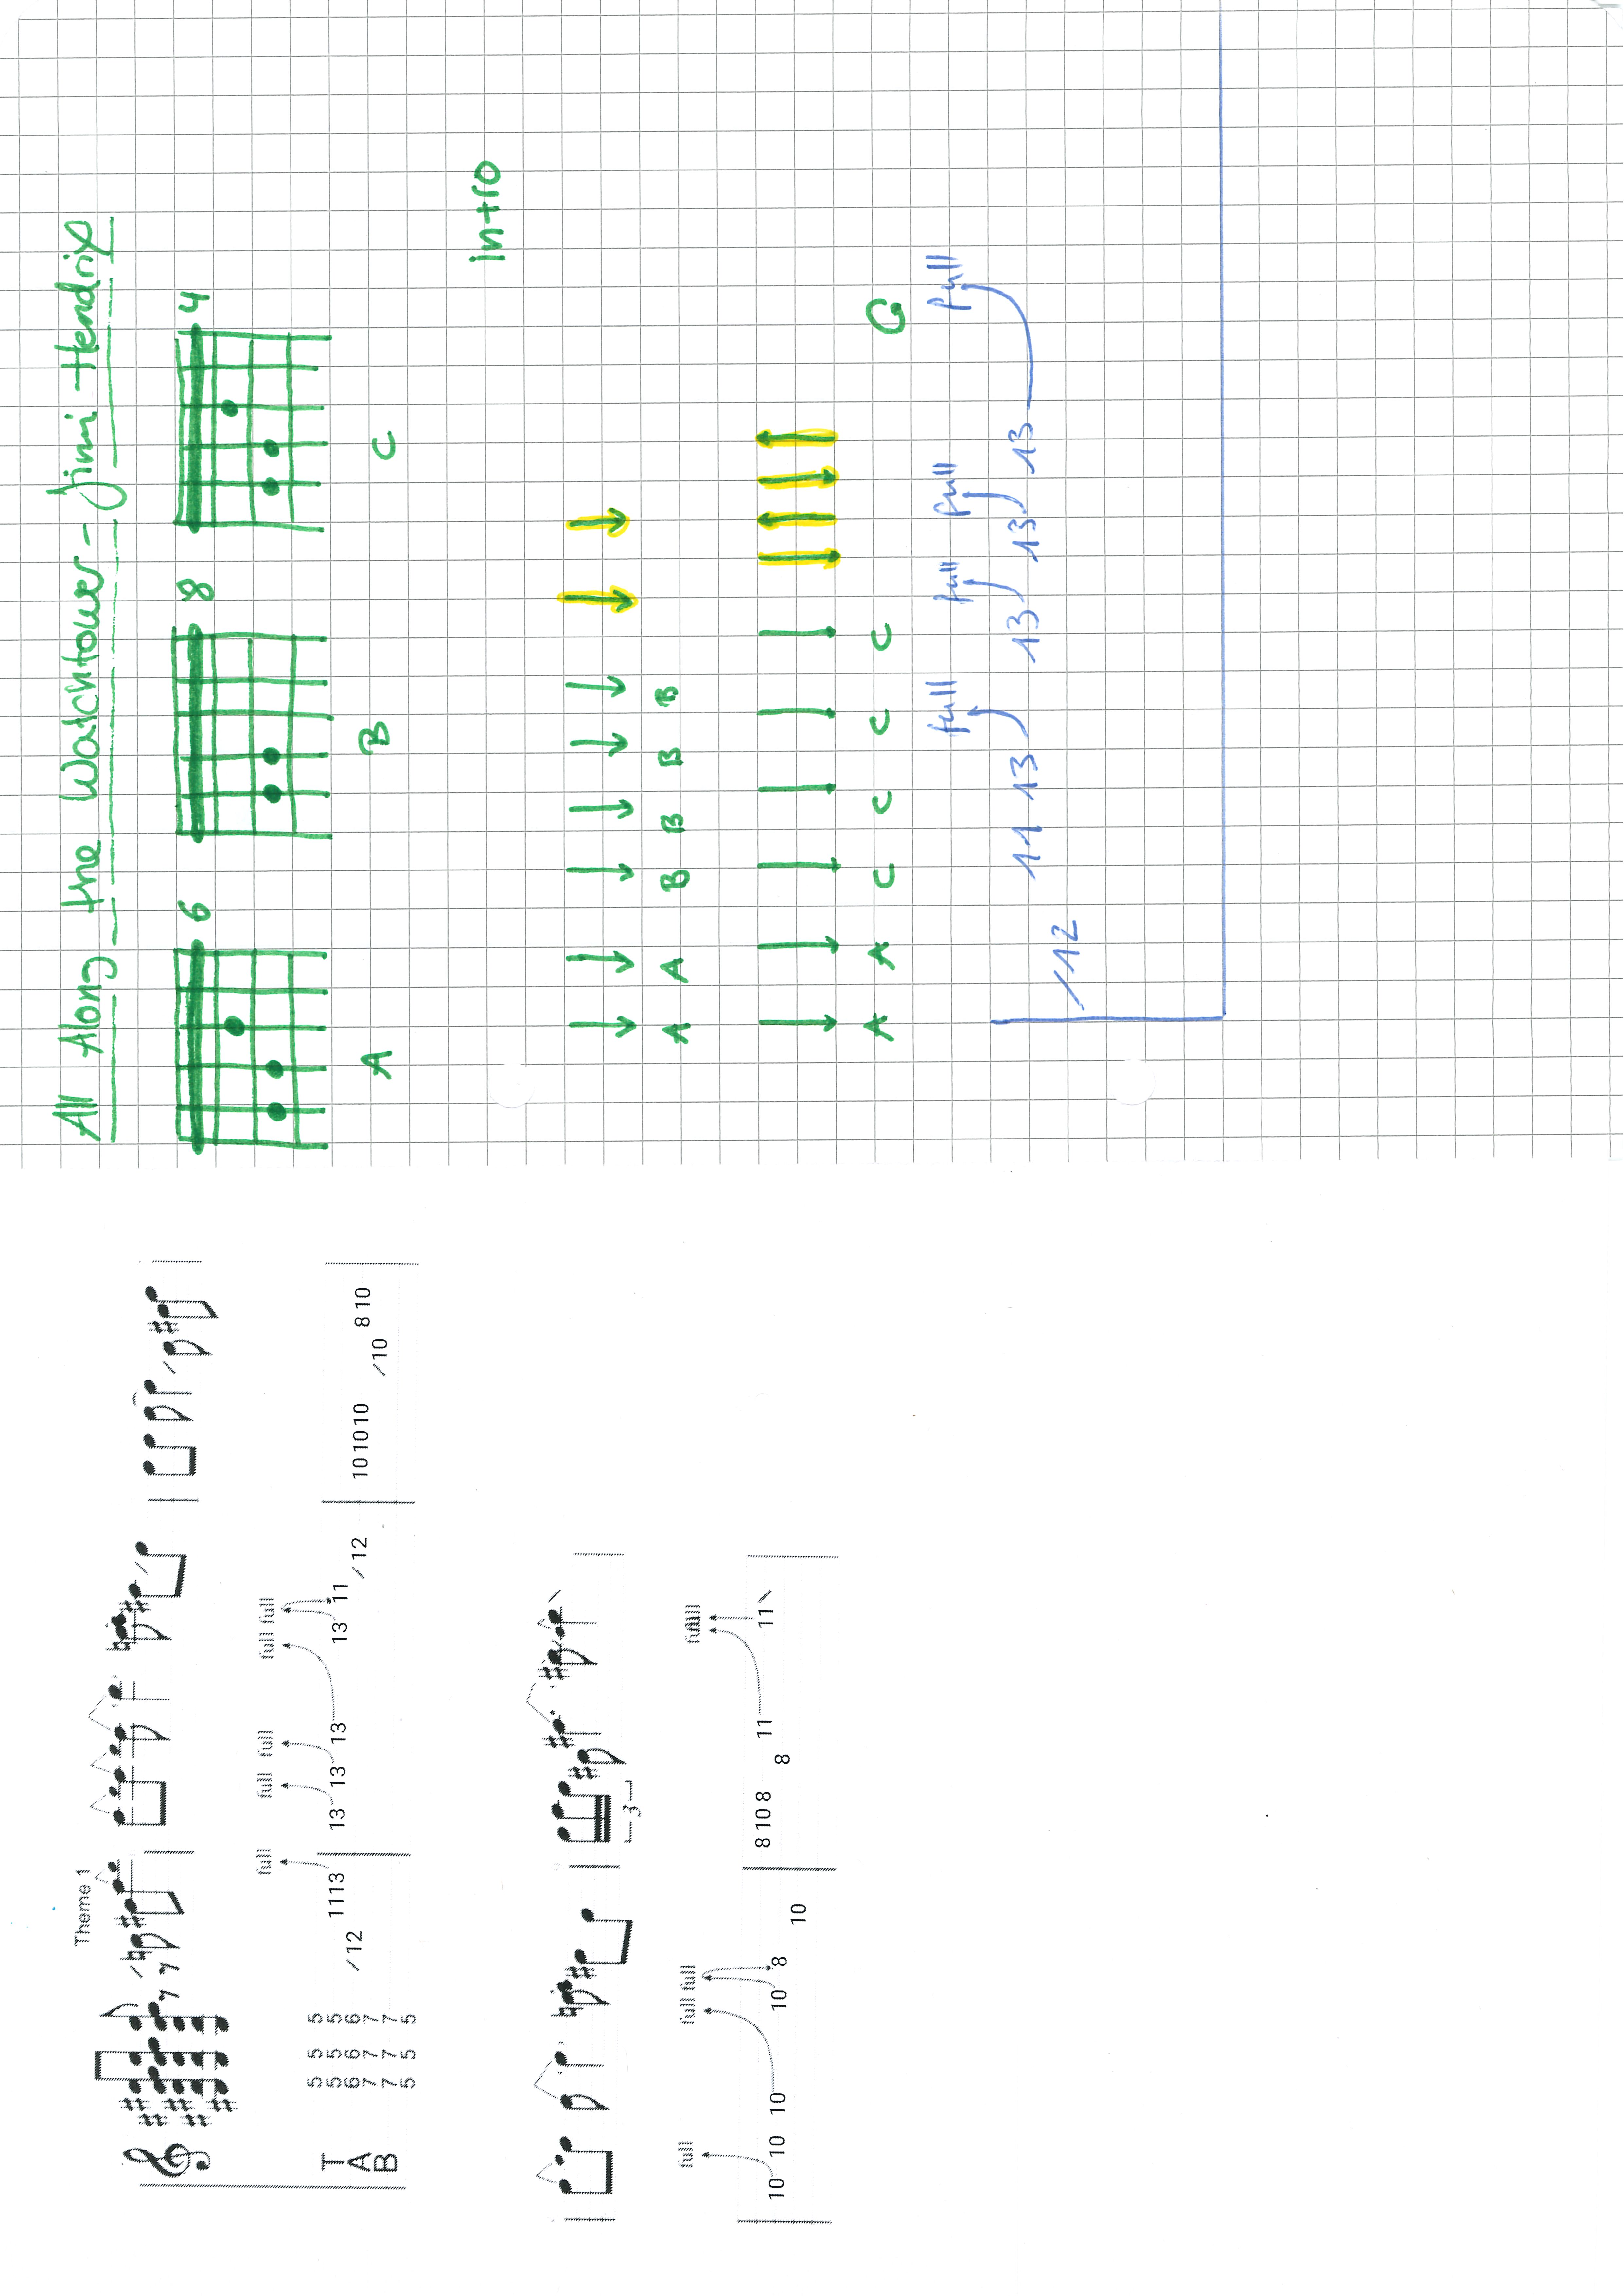 Theme 1
full full full full full
T A B
5 5 5
5 5 5 11 13 13 13 13 13 11
6 6 6 /12 /12 10 10 10 8 10
7 7 7 /10
7 7 7
5 5 5
3
full full full full full
8 10 8 11 11
10 10 10 10 8 8
10
All Along the Watchtower - Jimi Hendrix
6 8 4
A B C
intro
A A B B B B
A A C C C C G
full full full full
11 13 13 13 13
/12